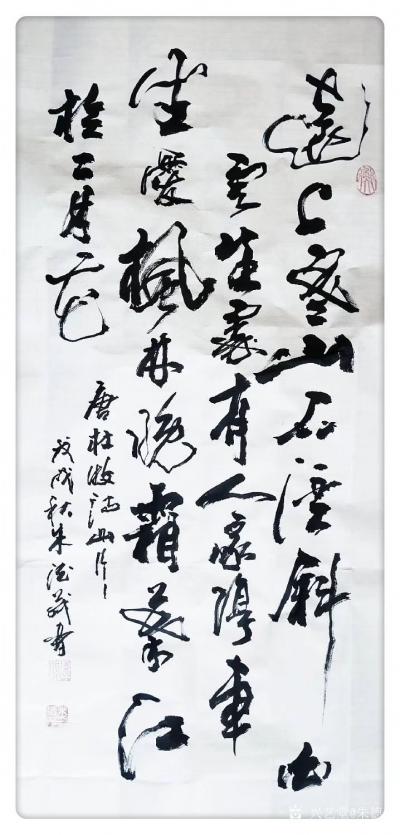 遠上寒山石徑斜白
雲生處有人家停車
坐愛楓林晚霜葉江
於二月花
唐杜牧詩山行
戊戌秋朱德書
兴艺堂@朱德